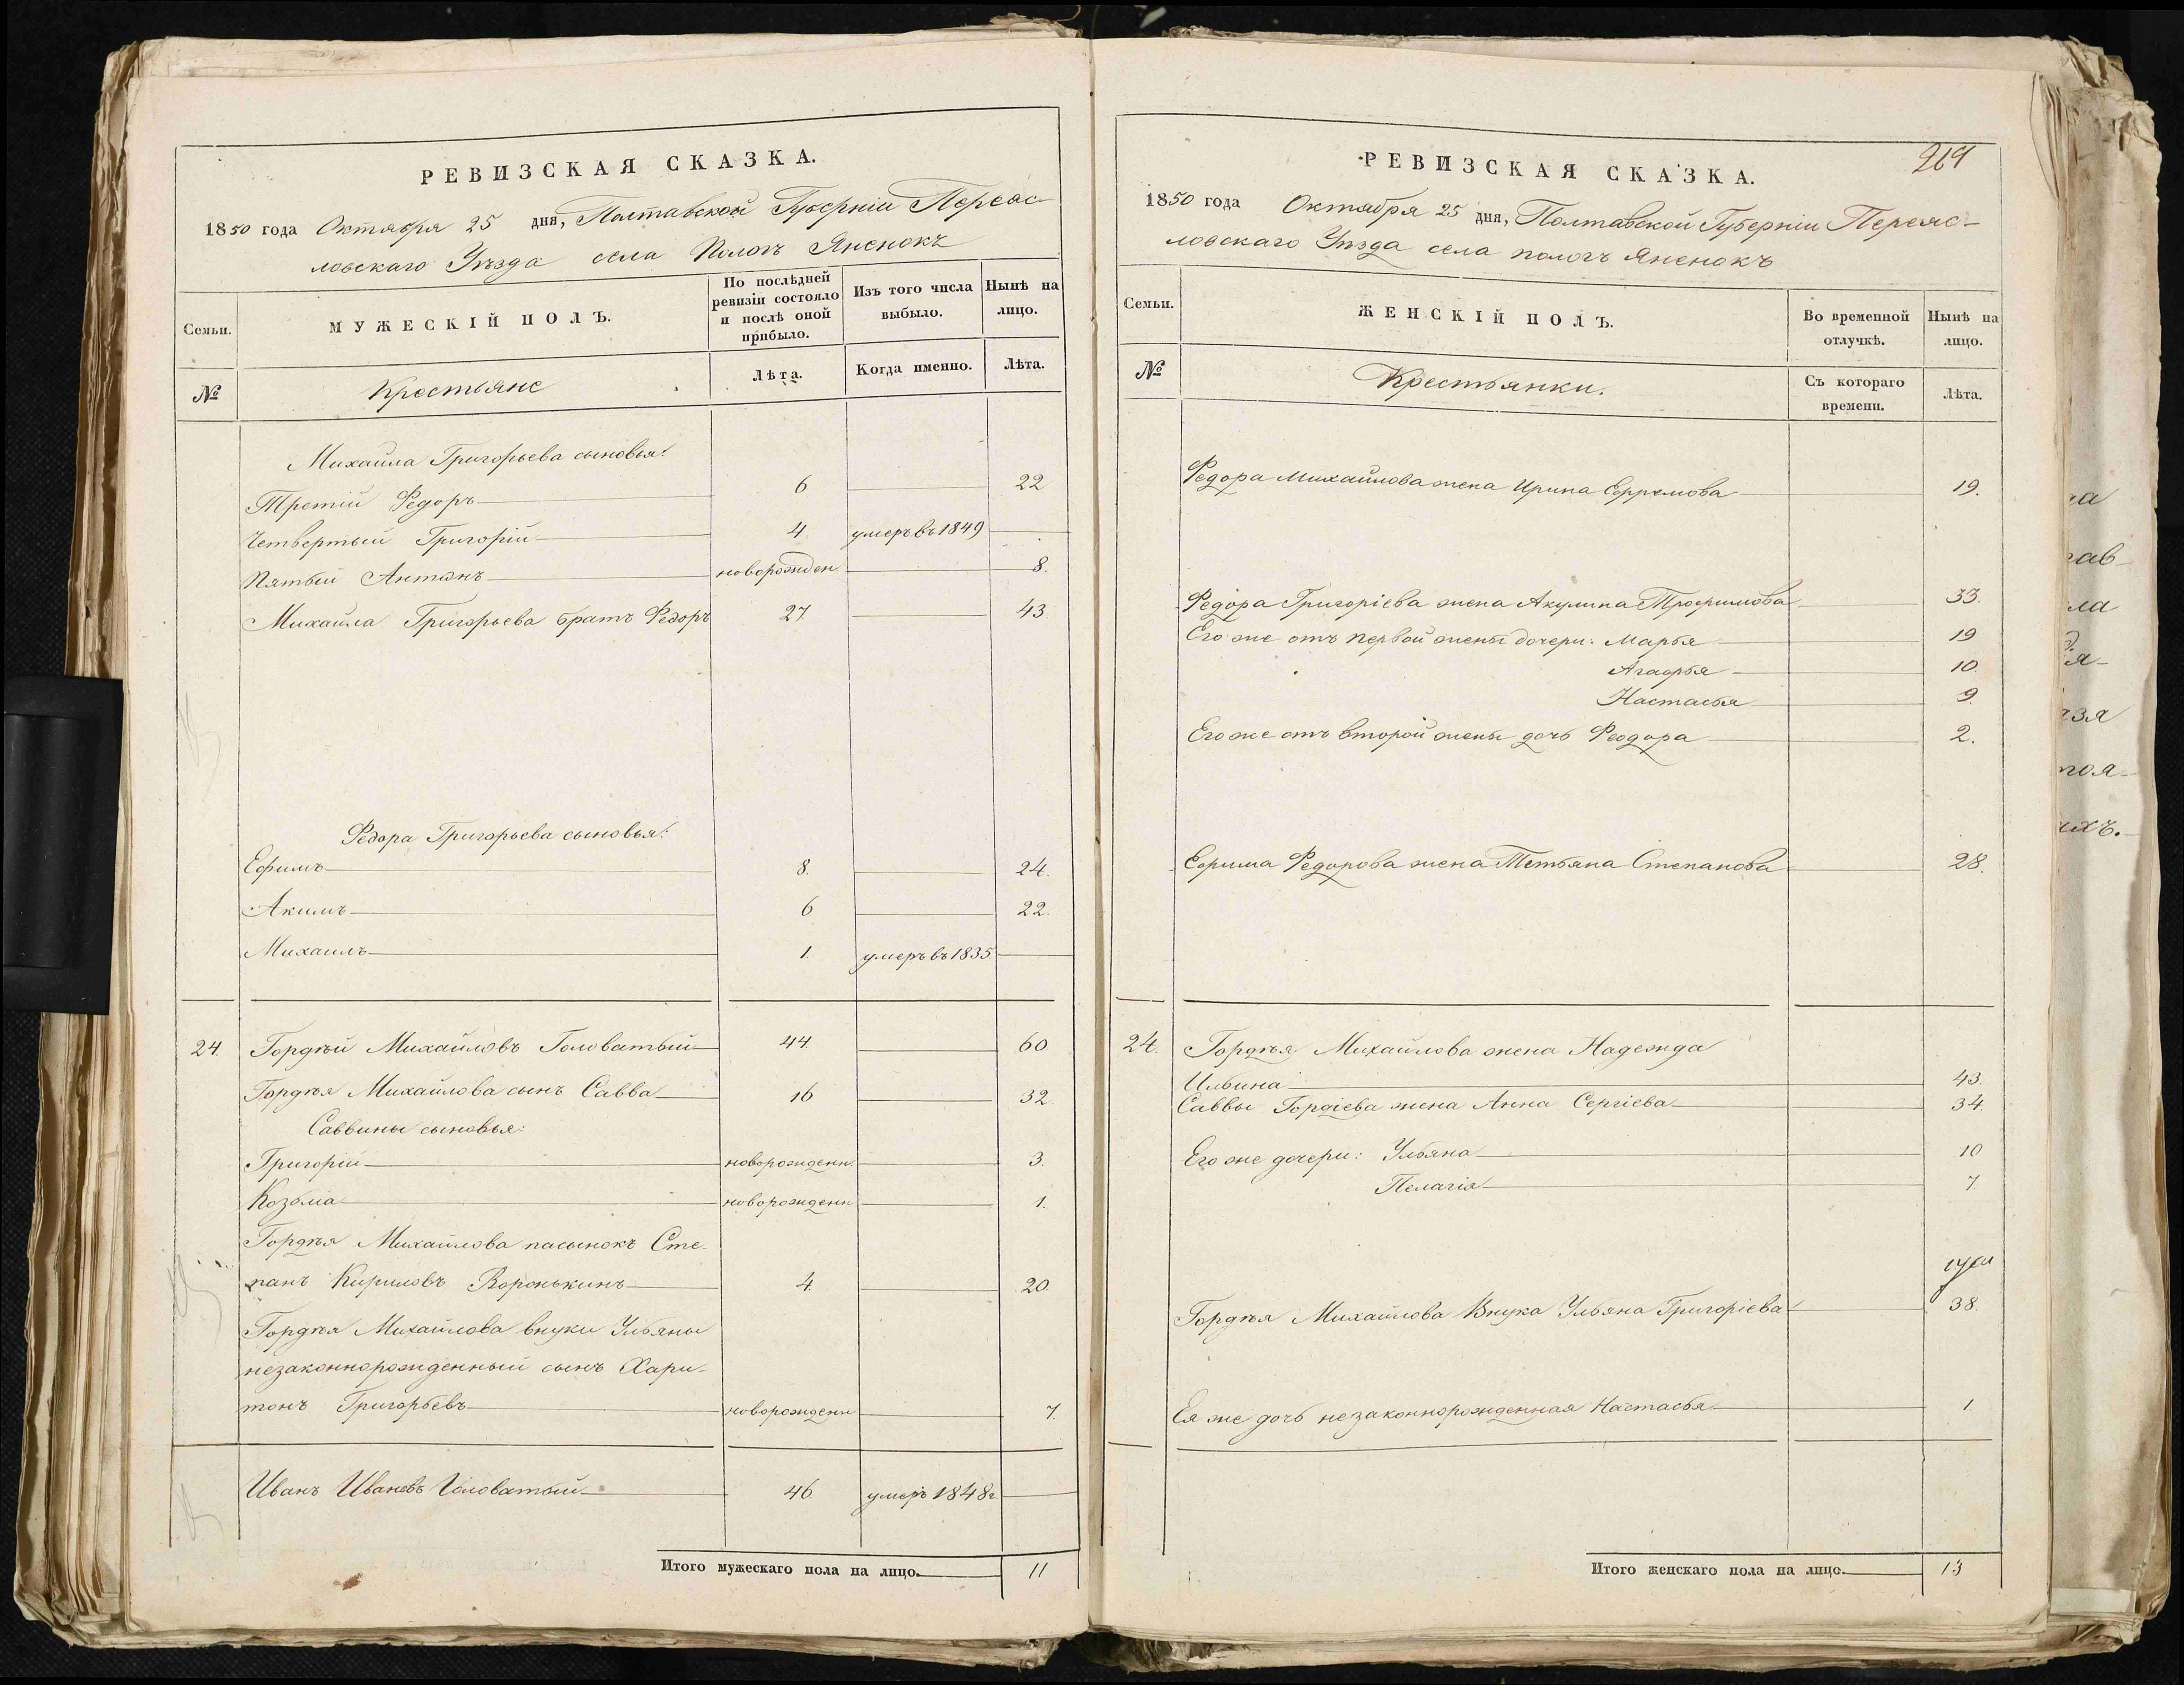 РЕВИЗСКАЯ СКАЗКА.
1850 года Октября 25 дня, Полтавской Губерніи Переяс-
ловскаго Уѣзда села Пологъ Яненокъ
Семьи.
МУЖЕСКІЙ ПОЛЪ.
По послѣдней ревизіи состояло и послѣ оной прибыло.
Изъ того числа выбыло.
Нынѣ на лицо.
№
Крестьяне
Лѣта.
Когда именно.
Лѣта.
Михаила Григорьева сыновья:
Третій Федоръ 6 22
Четвертый Григорій 4 умеръ въ 1849
Пятый Антонъ новорожден 8.
Михаила Григорьева братъ Федоръ 27. 43
Федора Григорьева сыновья:
Ефимъ 8. 24.
Акимъ 6 22.
Михаилъ 1. умеръ въ 1835
24. Гордѣй Михайловъ Головатый 44. 60
Гордѣя Михайлова сынъ Савва 16 32.
Саввины сыновья:
Григорій новорожденн. 3.
Козьма новорожденн 1.
Гордѣя Михайлова пасынокъ Сте-
панъ Кириловъ Воронькинъ 4. 20.
Гордѣя Михайлова внуки Ульяны
незаконнорожденный сынъ Хари-
тонъ Григорьевъ новорожденн 7.
Иванъ Ивановъ Головатый 46 умеръ 1848г.
Итого мужескаго пола на лицо. 11
269
РЕВИЗСКАЯ СКАЗКА.
1850 года Октября 25 дня, Полтавской Губерніи Переяс-
ловскаго Уѣзда села пологъ Яненокъ
Семьи.
ЖЕНСКІЙ ПОЛЪ.
Во временной отлучкѣ.
Нынѣ на лицо.
№
Крестьянки.
Съ котораго времени.
Лѣта.
Федора Михайлова жена Ирина Ефремова 19.
Федора Григоріева жена Акулина Трофимова 33.
Его же отъ первой жены дочери: Марья 19
Агафья 10.
Настасья 9.
Его же отъ второй жены дочь Феодора 2.
Ефима Федорова жена Тетьяна Степанова 28.
24. Гордѣя Михайлова жена Надежда
Ильина 43.
Саввы Гордіева жена Анна Сергіева 34.
Его же дочери: Ульяна 10
Пелагія 7
Гордѣя Михайлова Внука Ульяна Григоріева 38.
Ея же дочь незаконнорожденная Настасья 1
Итого женскаго пола на лицо. 13